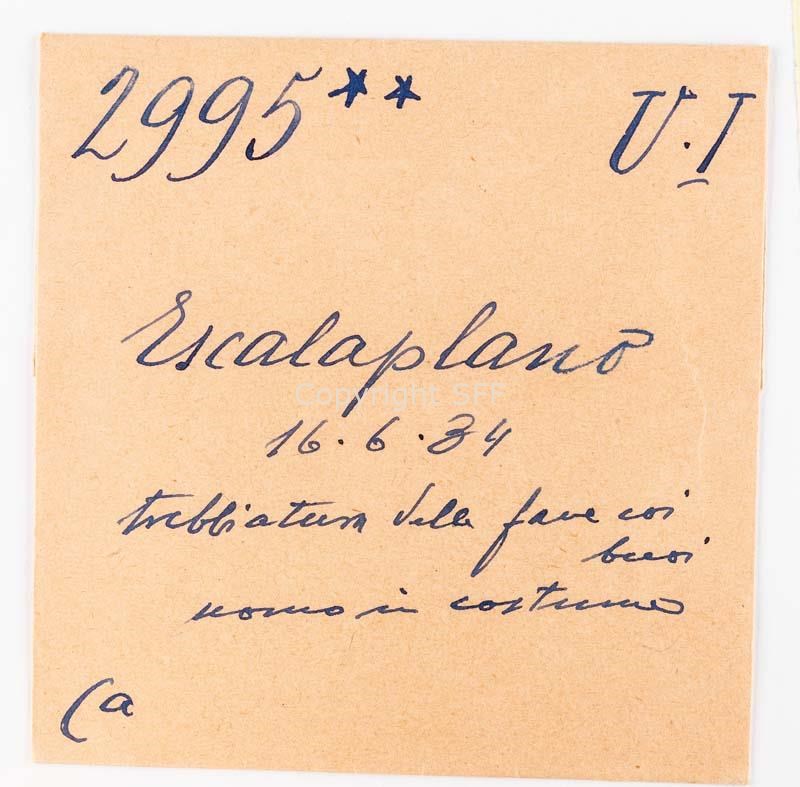 2995** V.I
Escalaplano
Copyright SFF
16.6.34
trebbiatura delle fave coi
buoi
uomo in costume
Ca